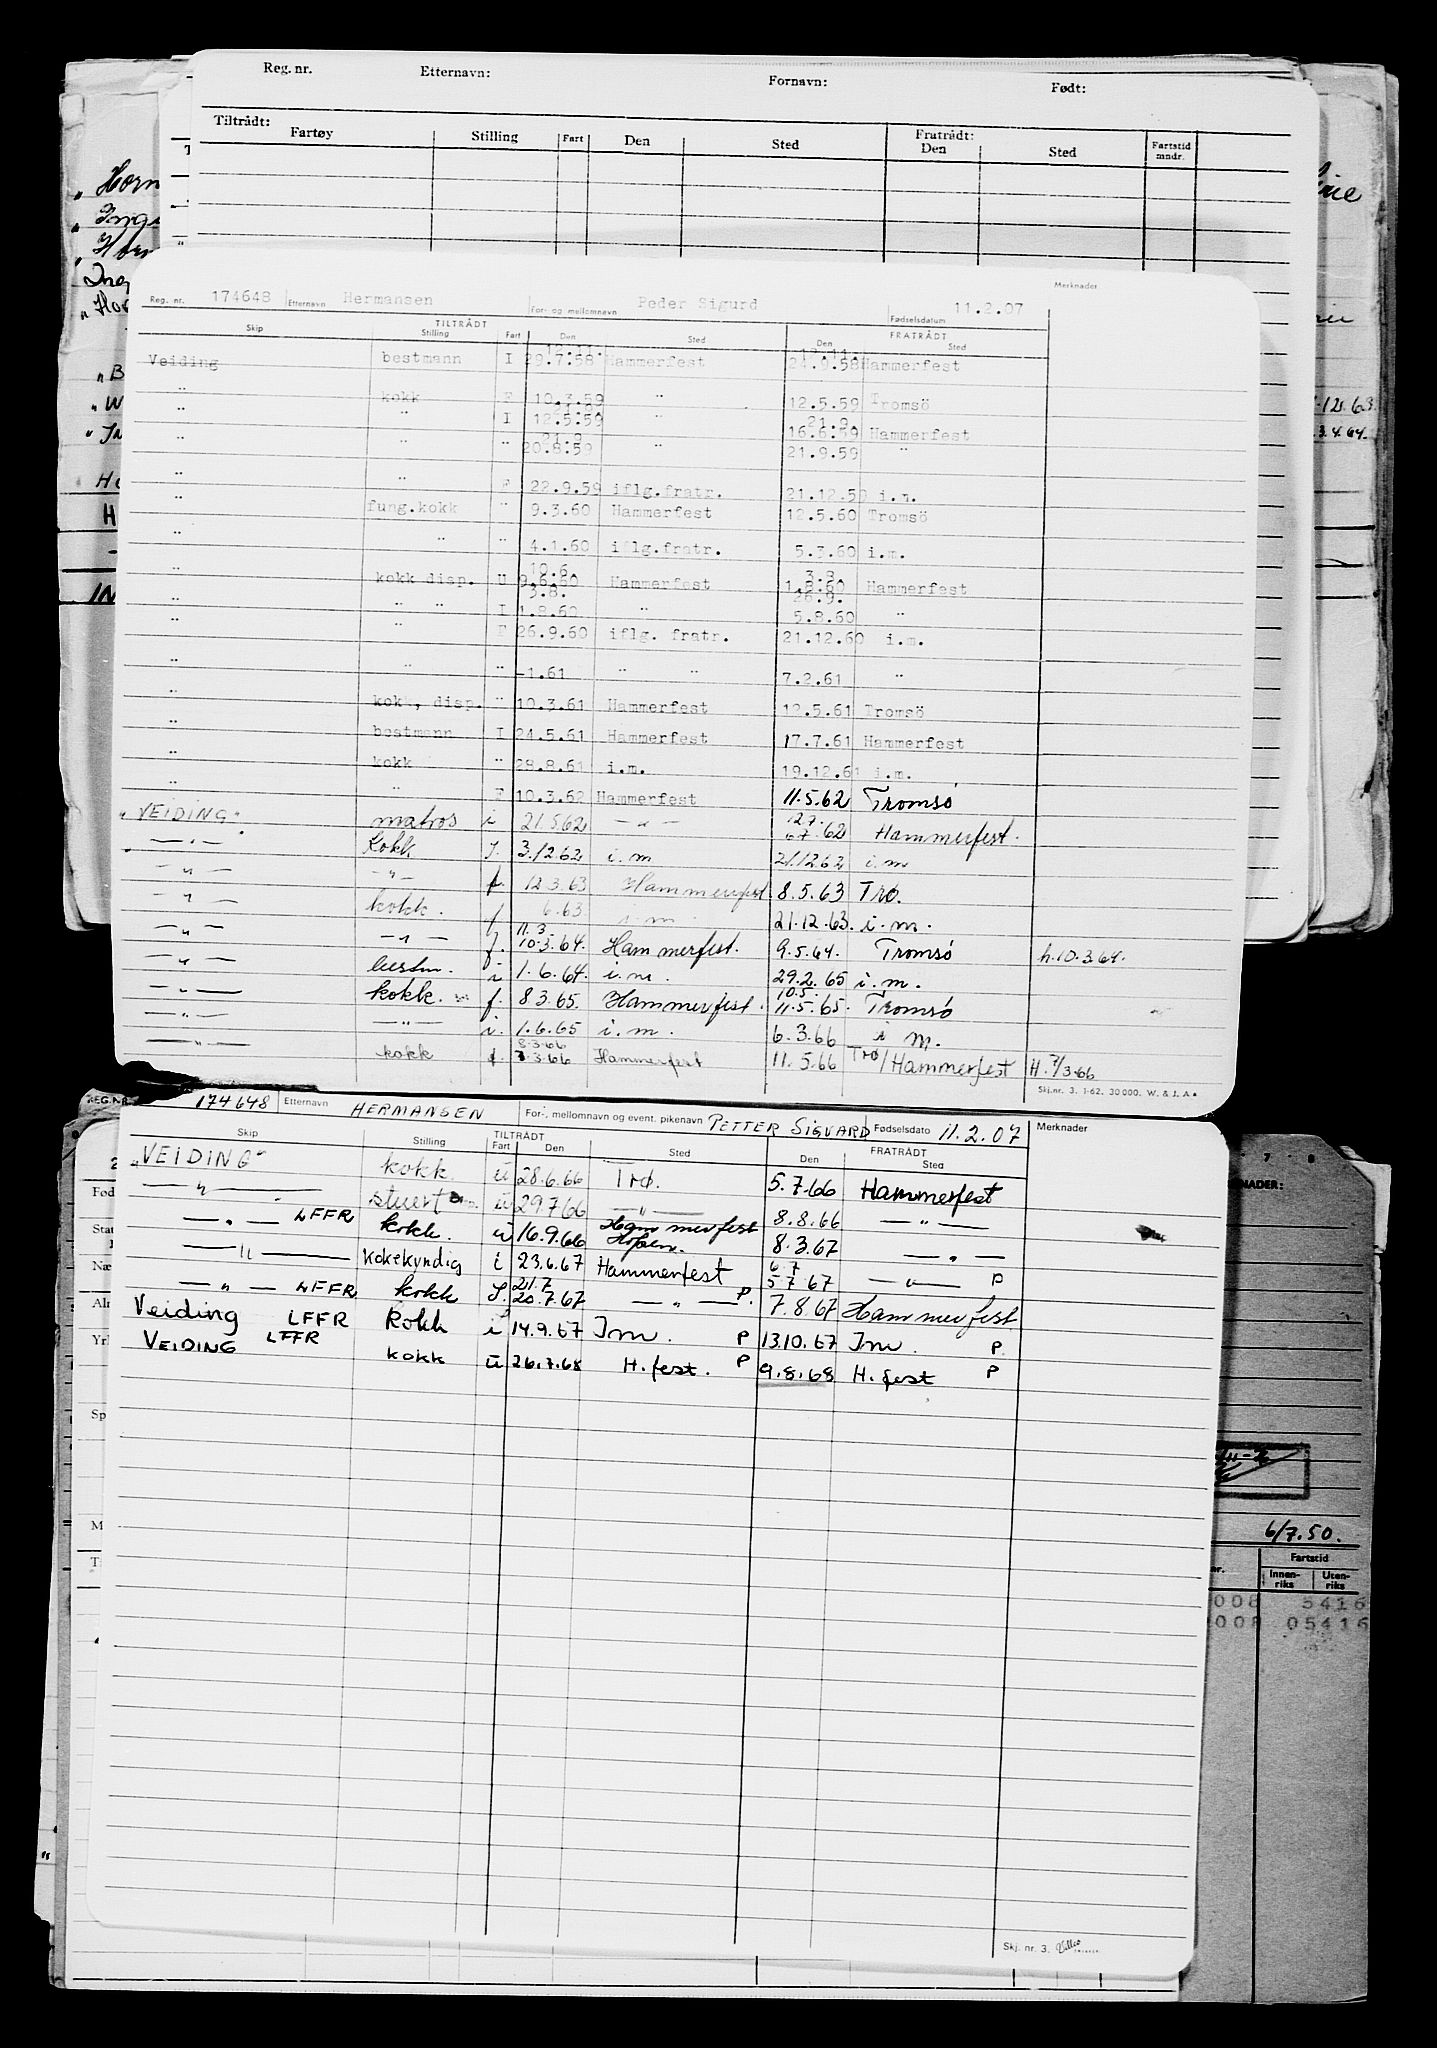 Reg. nr. Etternavn: Fornavn: Født:
Tiltrådt: Fratrådt:
Fartøy Stilling Fart Den Sted Den Sted Fartstid mndr.
Reg. nr. 174648 Etternavn Hermansen For- og mellomnavn Peder Sigurd Fødselsdatum 11.2.07 Merknader
TILTRÅDT FRATRÅDT
Skip Stilling Fart Den Sted Den Sted
Veiding bestmann I 29.7.58 Hammerfest 24.9.58 Hammerfest
" kokk F 10.3.59 " 12.5.59 Tromsö
" " I 12.5.59 21.9. 16.6.59 Hammerfest
" " " 21.9. 20.8.59 " 21.9.59 "
" " F 22.9.59 iflg.fratr. 21.12.59 i.m.
" fung.kokk " 9.3.60 Hammerfest 12.5.60 Tromsö
" " " 4.1.60 iflg.fratr. 5.3.60 i.m.
" kokk disp. U 10.6. 9.6.60 Hammerfest 3.8. 1.8.60 Hammerfest
" " " I 3.8. 1.8.60 " 26.9. 5.8.60 "
" " F 26.9.60 iflg. fratr. 21.12.60 i.m.
" " " -1.61 " " 7.2.61 "
" kokk, disp. " 10.3.61 Hammerfest 12.5.61 Tromsö
" bestmann I 24.5.61 Hammerfest 17.7.61 Hammerfest
" kokk " 28.8.61 i.m. 19.12.61 i.m.
" " F 10.3.62 Hammerfest 11.5.62 Tromsø
"VEIDING" matros i 21.5.62 — " — 12.7. 6.7.62 Hammerfest.
— " — Kokk I. 3.12.62 i.m 21.12.62 i.m
— " — — " — f. 12.3.63 Hammerfest 8.5.63 Trø.
— " — kokk. f 6.63 i.m. 21.12.63. i.m.
— " — — " — f. 11.3. 10.3.64. Hammerfest. 9.5.64. Tromsö h.10.3.64.
— " — bestm. i 1.6.64. i.m. 29.2.65 i.m.
— " — kokk. f. 8.3.65. Hammerfest. 10.5. 11.5.65. Tromsö
— " — — " — i. 1.6.65 i.m. 6.3.66 i m.
— " — kokk f. 8.3.66 7.3.66 Hammerfest 11.5.66 Trø/Hammerfest H. 7/3-66
Skj.nr. 3. 1-62. 30 000. W. & J. A.
REG.NR. 174648 Etternavn HERMANSEN For-, mellomnavn og event. pikenavn PETTER SIGVARD Fødselsdato 11.2.07 Merknader
TILTRÅDT FRATRÅDT
Skip Stilling Fart Den Sted Den Sted
"VEIDING" kokk u 28.6.66 Trø. 5.7.66 Hammerfest
— " — stuert u 29.7.66 — " — 8.8.66 — " —
— " — LFFR kokk. u 16.9.66 Hammerfest 8.3.67 — " —
— " — kokekyndig i 23.6.67 Hammerfest 6.7 5.7.67 — " — P
— " — LFFR kokk I. 21.7 20.7.67 — " — P. 7.8.67 Hammerfest
Veiding LFFR Kokk i 14.9.67 Im. P 13.10.67 Im. P.
VEIDING LFFR kokk u 26.7.68 H.fest. P 9.8.68 H.fest P
Skj. nr. 3.
6/7.50.
Fartstid
Innen-riks Uten-riks
008 5416
008 05416